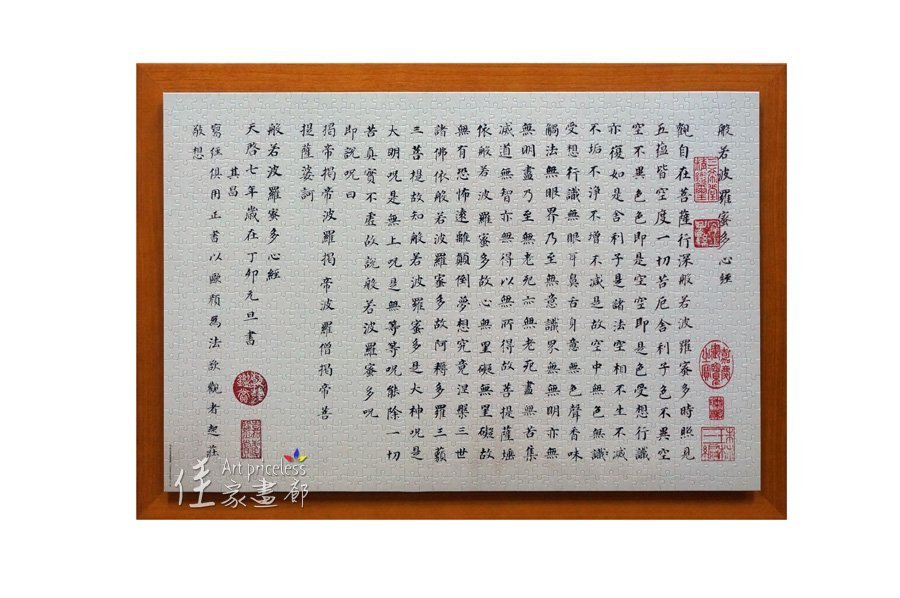 般若波羅蜜多心經
觀自在菩薩行深般若波羅蜜多時照見
五蘊皆空度一切苦厄舍利子色不異空
空不異色色即是空空即是色受想行識
亦復如是舍利子是諸法空相不生不滅
不垢不淨不增不減是故空中無色無識
受想行識無眼耳鼻舌身意無色聲香味
觸法無眼界乃至無意識界無無明亦無
無明盡乃至無老死亦無老死盡無苦集
滅道無智亦無得以無所得故菩提薩埵
依般若波羅蜜多故心無罣礙無罣礙故
無有恐怖遠離顛倒夢想究竟涅槃三世
諸佛依般若波羅蜜多故阿耨多羅三藐
三菩提故知般若波羅蜜多是大神呪是
大明呪是無上呪是無等等呪能除一切
苦真實不虛故說般若波羅蜜多呪
即說呪曰
揭帝揭帝波羅揭帝波羅僧揭帝菩
提薩婆訶
般若波羅蜜多心經
天啓七年歲在丁卯元旦書
其昌
寫經俱用正書以歐顏爲法欲觀者起莊
敬想
Art priceless
佳家畫廊